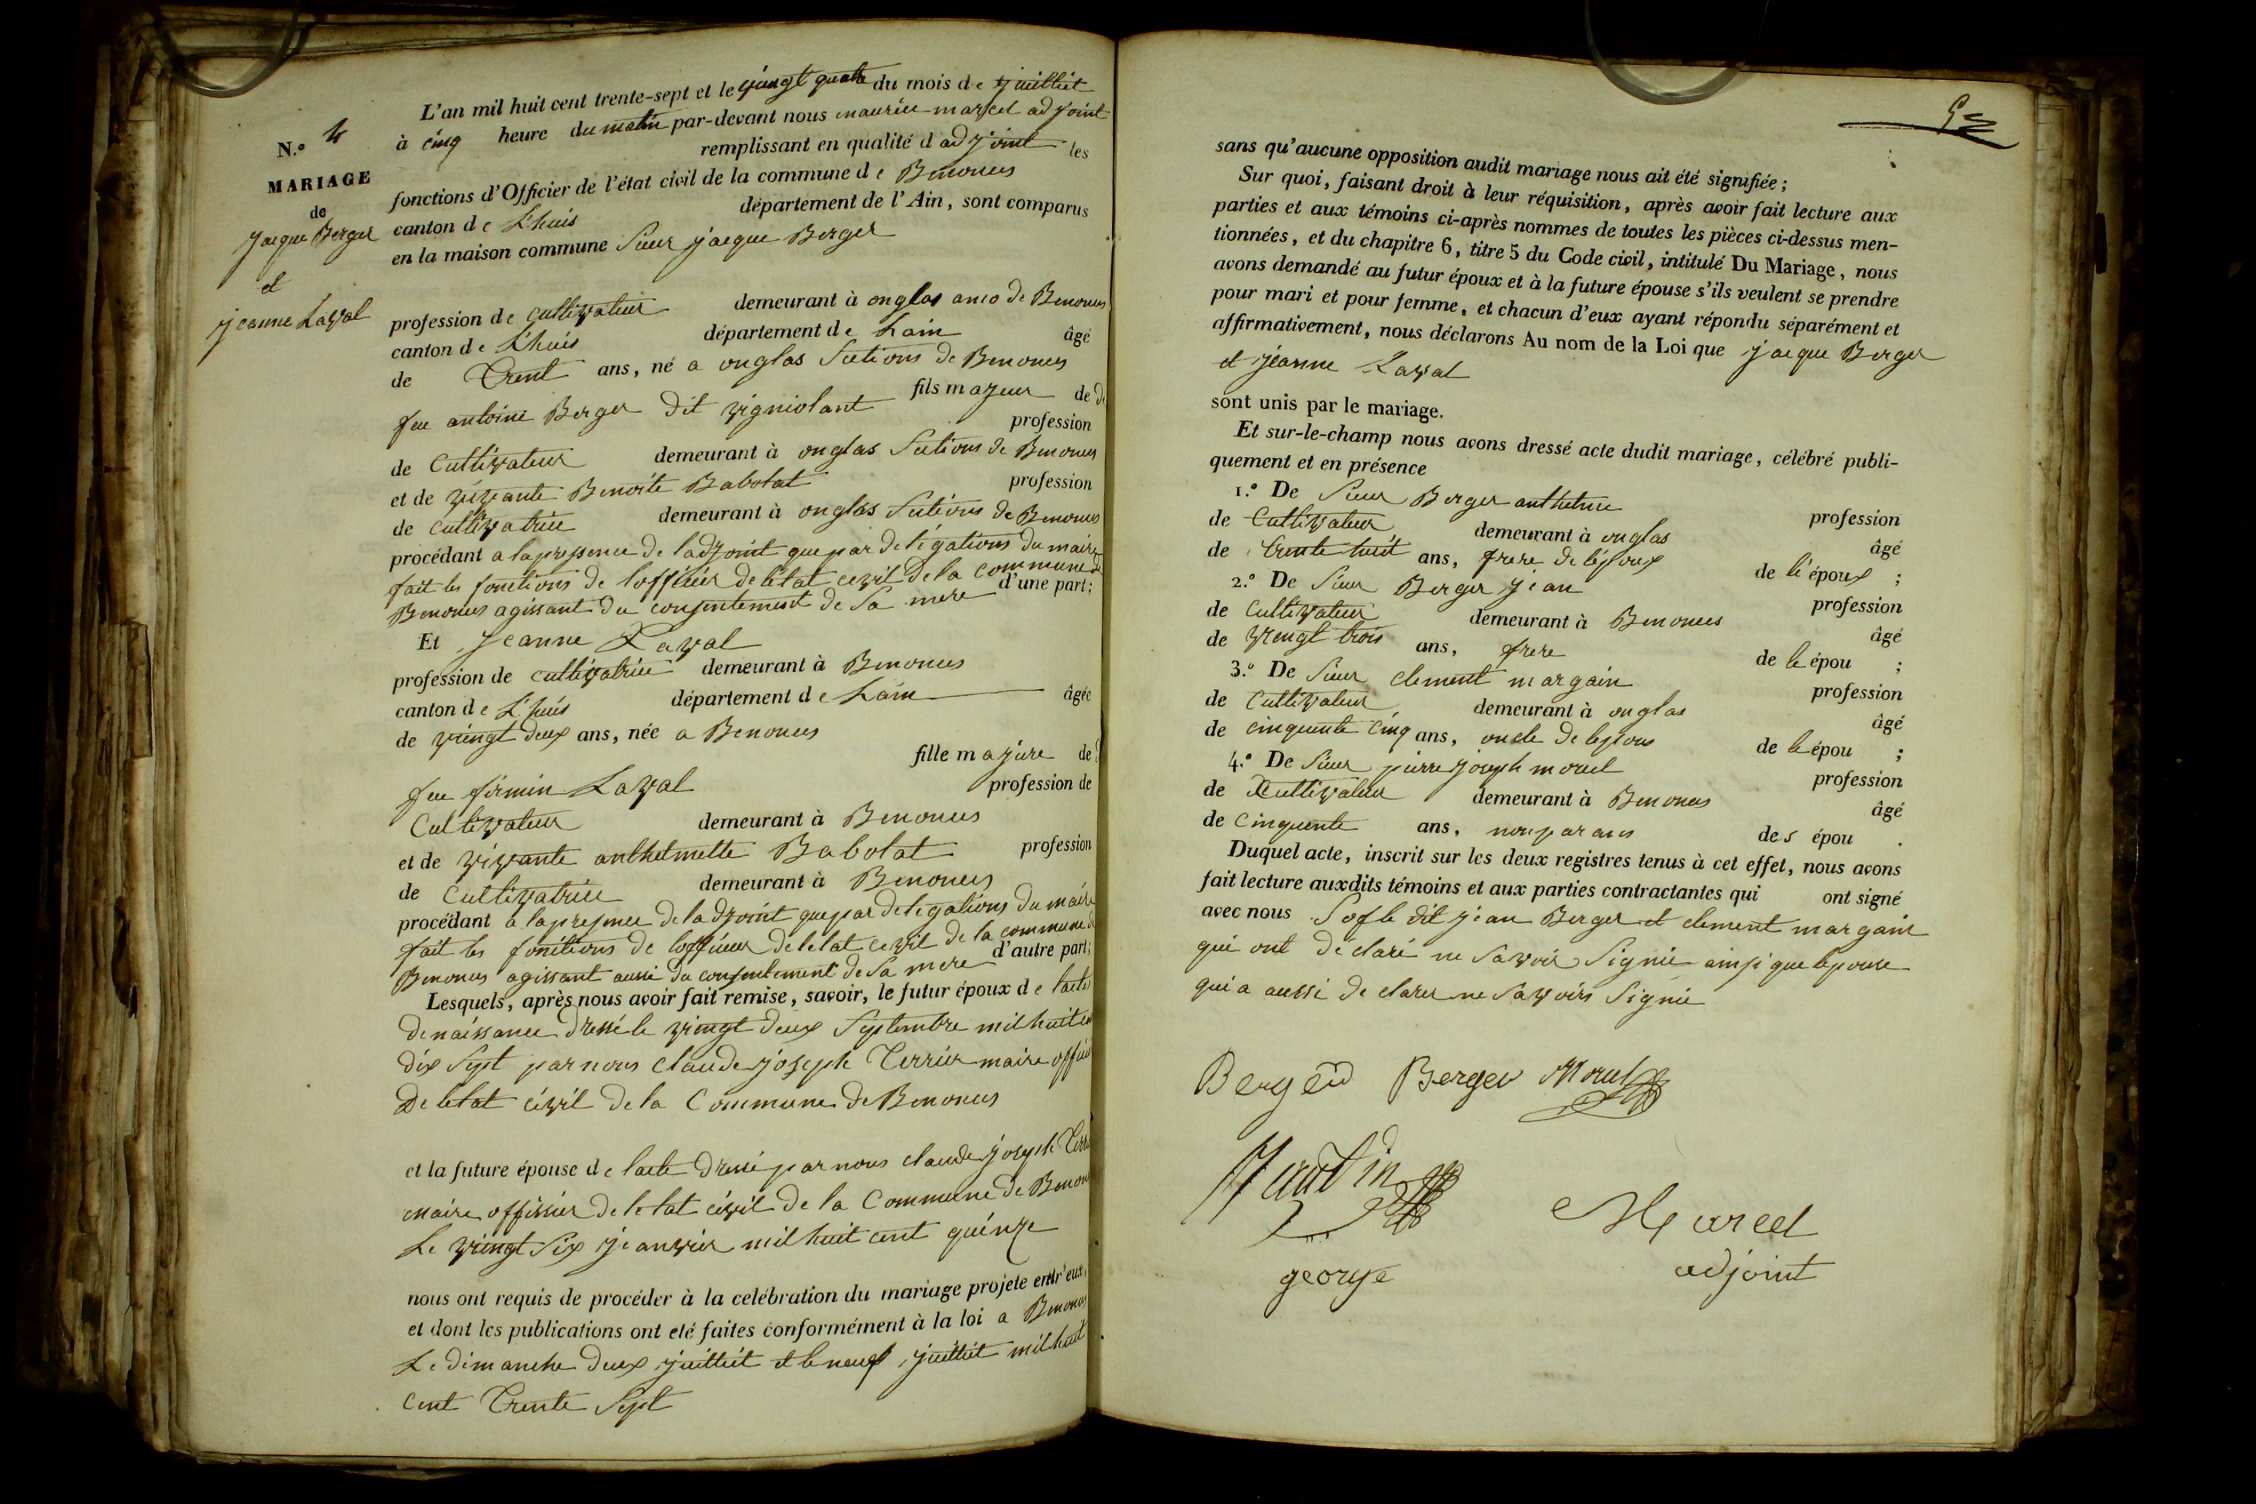 L'an mil huit cent trente-sept et le vingt quatre du mois de juilliet
N.º 4
à cinq heure du matin par-devant nous maurice marcel adjoint
remplissant en qualité d adjoint les
MARIAGE
fonctions d'Officier de l'état civil de la commune de Benonces
de
jacque Berger
canton de L'huis département de l'Ain, sont comparus
en la maison commune Sieur jacque Berger
et
jeanne Laval
profession de cultivateur demeurant à onglas de Benonces
canton de L'huis département de Lain âgé
de Trent ans, né a onglas Sections de Benonces
fils majeur de
feu antoine Berger dit vigniolant
profession
de Cultivateur demeurant à onglas Sections de Benonces
et de vivante Benoite Babolat profession
de cultivatrice demeurant à onglas Sections de Benonces
procédant a la pressence de ladjoint que par delégations du maire
fait les fonctions de lofficier de létat cevil de la commune de
Benonces agissant du consentement de Sa mere d'une part;
Et Jeanne Laval
profession de cultivatrice demeurant à Benonces
canton de L'huis département de Lain âgée
de vingt deux ans, née a Benonces
fille majure de
feu firmin Laval profession de
Cultivateur demeurant à Benonces
et de vivante anthelmette Babolat profession
de Cultivatrice demeurant à Benonces
procédant a la presence de ladjoint que par delegations du maire
fait les fonitions de lofficier de letat cevil de la commune de
Benonces agissant aussi du consentement de Sa mere d'autre part;
Lesquels, après nous avoir fait remise, savoir, le futur époux de lacte
de naissance dressé le vingt deux Septembre mil huit cent
dix Sept par nous claude joseph Terrier maire officier
De letat civil de la Commune de Benonces
et la future épouse de lacte dressé par nous claude joseph
maire offissier de letat civil de la Commune de Benonces
Le vingt Six jeanvier mil huit cent quinze
nous ont requis de procéder à la celébration du mariage projeté entr'eux,
et dont les publications ont eté faites conformément à la loi a Benonces
Le dimanche deux juilliet et le neuf juilliet mil huit
cent Trente Sept
sans qu'aucune opposition audit mariage nous ait été signifiée;
Sur quoi, faisant droit à leur réquisition, après avoir fait lecture aux
parties et aux témoins ci-après nommes de toutes les pièces ci-dessus men-
tionnées, et du chapitre 6, titre 5 du Code civil, intitulé Du Mariage, nous
avons demandé au futur époux et à la future épouse s'ils veulent se prendre
pour mari et pour femme, et chacun d'eux ayant répondu séparément et
affirmativement, nous déclarons Au nom de la Loi que jacque Berger
et jeanne Laval
sont unis par le mariage.
Et sur-le-champ nous avons dressé acte dudit mariage, célébré publi-
quement et en présence
1.º De Sieur Berger
profession
de Cultivateur demeurant à onglas âgé
de trente huit ans, frere de lépoux de lépoux ;
2.º De Sieur Berger jean profession
de Cultivateur demeurant à Benonces âgé
de vengt trois ans, frere de le épou ;
3.º De Sieur clement margain profession
de Cultivateur demeurant à onglas âgé
de cinquente cinq ans, oncle de lepous de le épou ;
4.º De Sieur pierre joseph morel profession
de Cultivateur demeurant à Benonces âgé
de Cinquente ans, non parans des épou .
Duquel acte, inscrit sur les deux registres tenus à cet effet, nous avons
fait lecture auxdits témoins et aux parties contractantes qui ont signé
avec nous dit jean Berger et clement margain
qui ont declaré ne Savoir Signié ainsi que lepouse
qui a aussi declarer ne Savoirs Signié
Berger Morel
Marcel
george adjoint